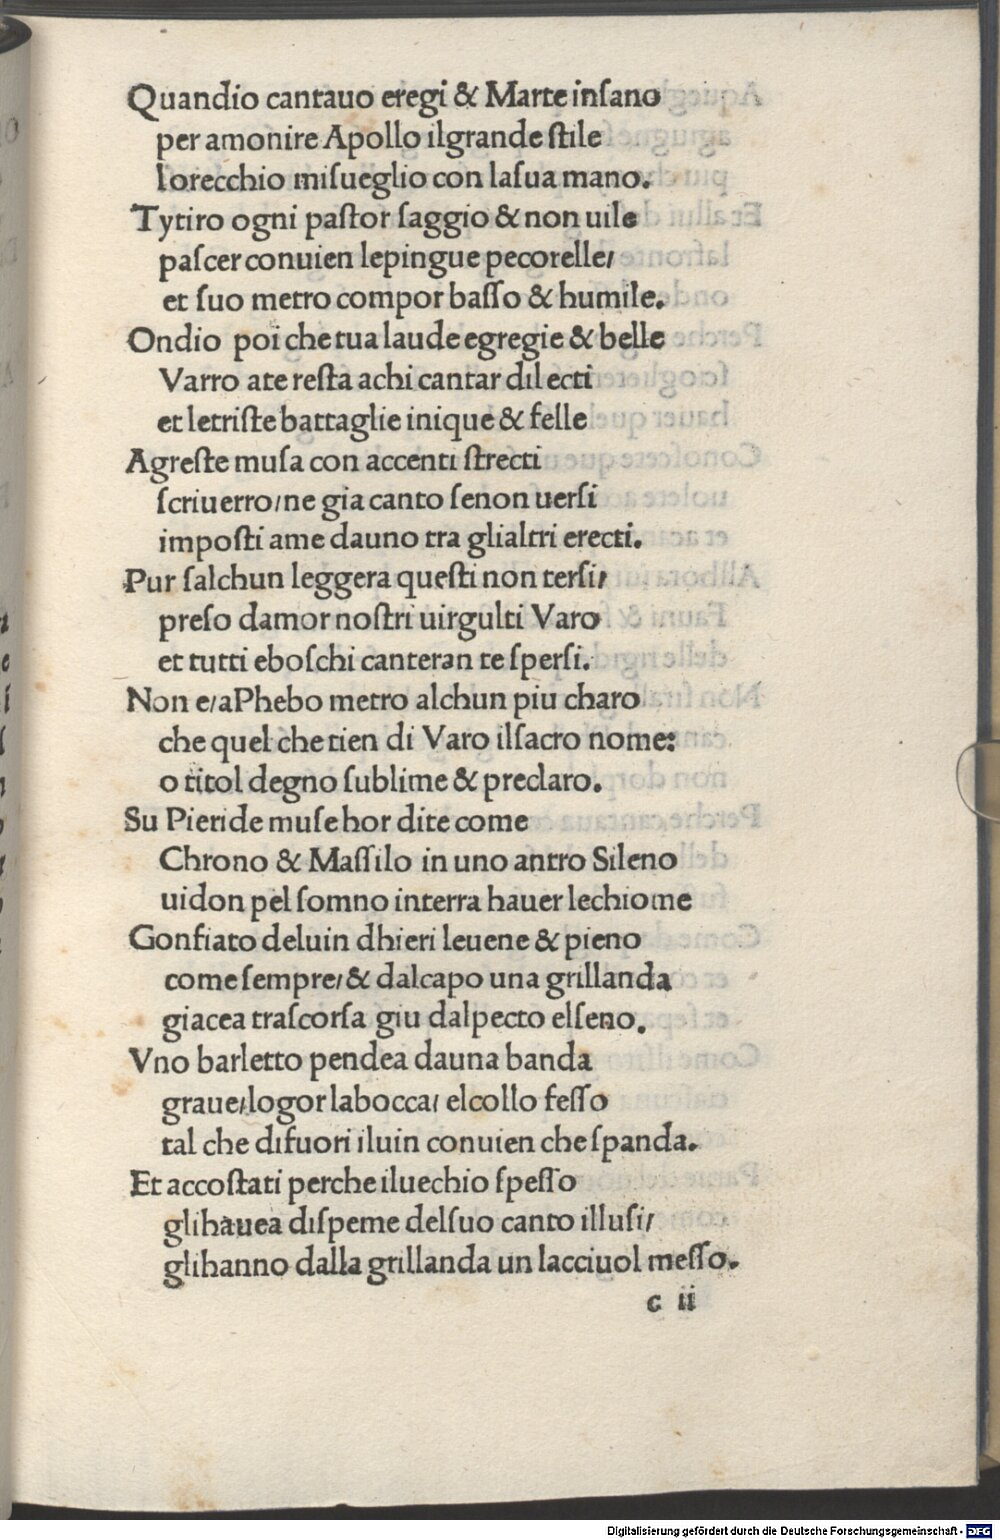 Quandio cantauo eregi & Marte inſano
per amonire Apollo ilgrande ſtile
lorecchio miſueglio con laſua mano.
Tytiro ogni paſtor ſaggio & non uile
paſcer conuien lepingue pecorelle/
et ſuo metro compor baſſo & humile.
Ondio poi che tua laude egregie & belle
Varro ate reſta achi cantar dilecti
et letriſte battaglie inique & felle
Agreſte muſa con accenti ſtrecti
ſcriuerro/ne gia canto ſenon uerſi
impoſti ame dauno tra glialtri erecti.
Pur ſalchun leggera queſti non terſi/
preſo damor noſtri uirgulti Varo
et tutti eboſchi canteran te ſperſi.
Non e/aPhebo metro alchun piu charo
che quel che tien di Varo ilſacro nome:
o titol degno ſublime & preclaro.
Su Pieride muſe hor dite come
Chrono & Maſſilo in uno antro Sileno
uidon pel ſomno interra hauer lechiome
Gonfiato deluin dhieri leuene & pieno
come ſempre/& dalcapo una grillanda
giacea traſcorſa giu dalpecto elſeno.
Vno barletto pendea dauna banda
graue/logor labocca/ elcollo feſſo
tal che difuori iluin conuien che ſpanda.
Et accoſtati perche iluechio ſpeſſo
glihauea diſpeme delſuo canto illuſi/
glihanno dalla grillanda un lacciuol meſſo.
c ii
Digitalisierung gefördert durch die Deutsche Forschungsgemeinschaft - DFG